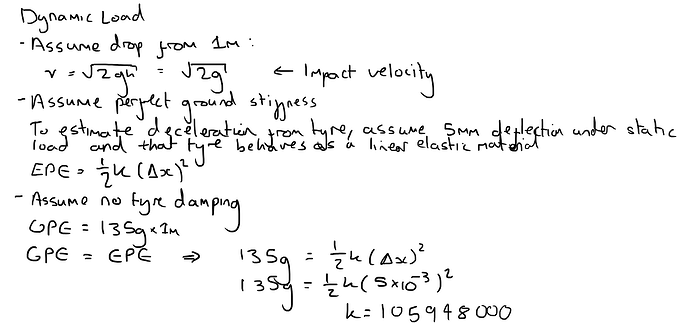 Dynamic Load
- Assume drop from 1m :
v = √2gh = √2g ← Impact velocity
- Assume perfect ground stiffness
To estimate deceleration from tyre, assume 5mm deflection under static
load and that tyre behaves as a linear elastic material
EPE = 1/2 k (Δx)²
- Assume no tyre damping
GPE = 135g × 1m
GPE = EPE ⇒ 135g = 1/2 k (Δx)²
135g = 1/2 k (5×10⁻³)²
k = 105948000